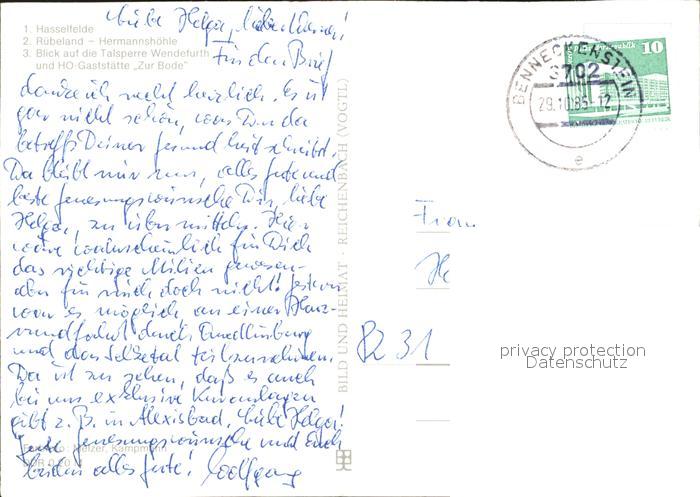 1. Hasselfelde
2. Rübeland – Hermannshöhle
3. Blick auf die Talsperre Wendefurth
und HO-Gaststätte „Zur Bode“
Liebe Helga, liebe
Für den Brief
danke ich recht herzlich. Es ist
gar nicht schön, was Du da
betreffs Deiner Gesundheit schreibst.
Da bleibt mir nur, alles Gute und
beste Genesungswünsche Dir, liebe
Helga, zu übermitteln. Hier
wäre wahrscheinlich für Dich
das richtige Milieu gewesen –
aber für mich doch nicht! Gestern
war es möglich an einer Harz-
rundfahrt durch Quedlinburg
und das Selketal teilzunehmen.
Da ist zu sehen, daß es auch
bei uns exklusive Kuranlagen
gibt z. B. in Alexisbad. Liebe Helga!
Gute Genesungswünsche und Euch
beiden alles Gute! Wolfgang
Foto: Melzer, Kampmann
DDR
BILD UND HEIMAT · REICHENBACH (VOGTL)
BENNECKENSTEIN
3702
29.10.85-12
e
10
Frau
He
8231
privacy protection
Datenschutz